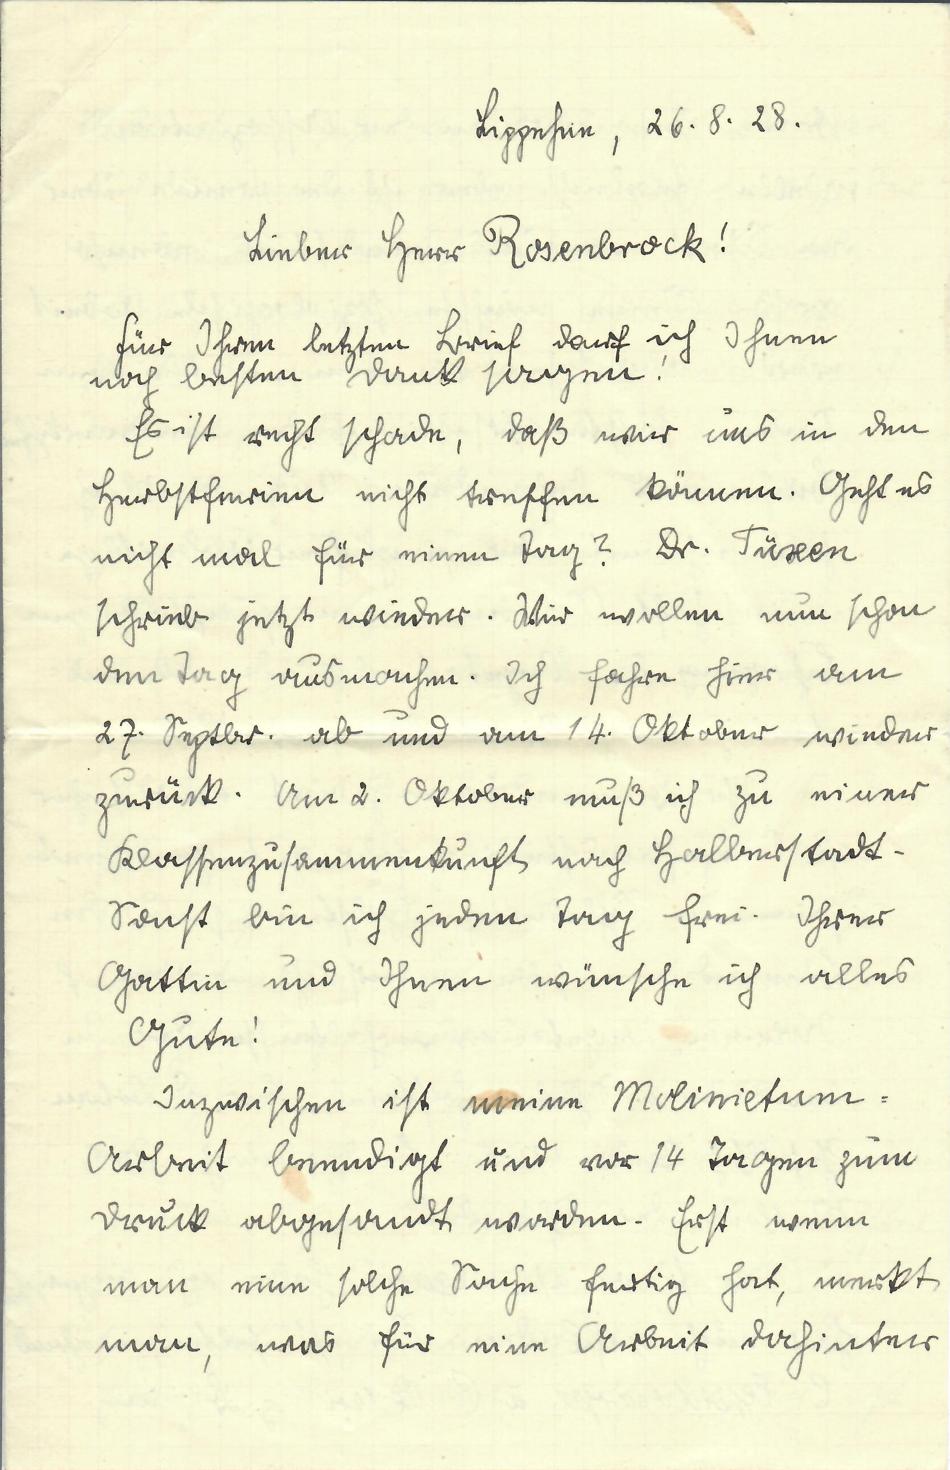 Lippehne, 26. 8. 28.
Lieber Herr Rosenbrock!
Für Ihren letzten Brief darf ich Ihnen
noch besten Dank sagen!
Es ist recht schade, daß wir uns in den
Herbstferien nicht treffen können. Geht es
nicht mal für einen Tag? Dr. Tüxen
schrieb jetzt wieder. Wir wollen nun schon
den Tag ausmachen. Ich fahre hier am
27. Septbr. ab und am 14. Oktober wieder
zurück. Am 2. Oktober muß ich zu einer
Klassenzusammenkunft nach Halberstadt.
Sonst bin ich jeden Tag frei. Ihrer
Gattin und Ihnen wünsche ich alles
Gute!
Inzwischen ist meine Molinietum=
Arbeit beendigt und vor 14 Tagen zum
Druck abgesandt worden. Erst wenn
man eine solche Sache fertig hat, merkt
man, was für eine Arbeit dahinter